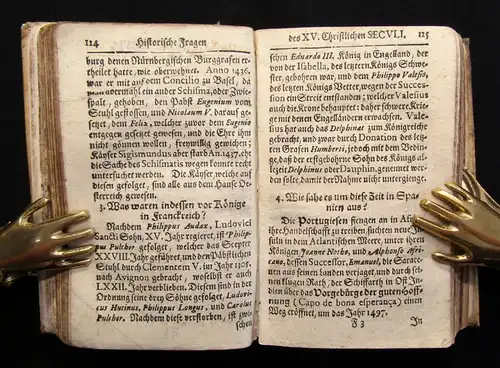 114 Historische Fragen
burg denen Nürnbergischen Burggrafen er-
theilet hatte, wie oberwehnet. Anno 1436.
war er mit auf dem Concilio zu Basel, da
man abermahl ein ander Schisma, oder Zwie-
spalt, gehaben, den Pabst Eugenium vom
Stuhl gestossen, und Nicolaum V. darauf ge-
setzet, dem Felix, welcher zuvor dem Eugenio
entgegen gesetzet gewesen, und die Ehre ihm
nicht gönnen wollen, freywillig gewichen;
Käyser Sigismundus aber starb An. 1437. ehe
die Sache des Schismatis wegen konnte recht
untersuchet werden. Die Käyser, welche auf
diesen gefolget, sind alle aus dem Hause Oe-
sterreich gewesen.
3. Was waren indessen vor Könige
in Franckreich?
Nachdem Philippus Audax, Ludovici
Sancti Sohn, XV. Jahr regieret, ist Philip-
pus Pulcher gefolget, welcher das Scepter
XXVIII Jahr geführet, und den Päbstlichen
Stuhl durch Clementem V. im Jahr 1305.
nach Avignon gebracht, woselbst er auch
LXXII. Jahr verblieben. Diesem sind in der
Ordnung seine drey Söhne gefolget, Ludovi-
cus Hutinus, Philippus Longus, und Carolus
Pulcher. Nachdem diese verstorben, ist zwi-
schen
des XV. Christlichen SECULI. 115
schen Eduardo III. König in Engelland, der
von der Isabella, des letzten Königs Schwe-
ster, gebohren war, und dem Philippo Valesio,
des letzten Königs Vetter, wegen der Succes-
sion ein Streit entstanden; welcher Valesius
auch die Krone behauptet: daher schwere Krie-
ge mit denen Engelländern erwachsen. Valesi-
us hat auch das Delphinat zum Königreiche
gebracht, und zwar durch Donation des letz-
ten Grafen Humberti, jedoch mit dem Bedin-
ge, daß der erstgebohrne Sohn des Königs al-
lezeit Delphinus oder Dauphin, genennet wer-
den solte, damit der Nahme nicht untergienge.
4. Wie sahe es um diese Zeit in Spa-
nien aus?
Die Portugiesen fiengen an in Africa
ihre Handelschafft zu treiben, suchten neue In-
suln in dem Atlantischen Meere, unter ihren
Königen Joanne Notho, und Alphonso Afri-
cano, dessen Successor, Emanuel, die Saracenen
aus seinen Landen verjaget, und durch sei-
nen klugen Rath, der Schiffarth in Ost In-
dien über das Vorgebürge der guten Hoff-
nung (Capo de bona esperança) einen
Weg eröffnet, um das Jahr 1497.
F 3 In